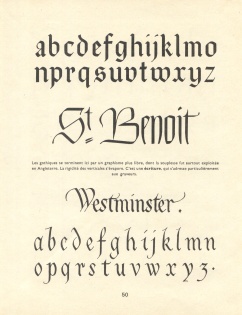 abcdefghijklmo
nprqsuvtwxyz
St. Benoit
Les gothiques se terminent ici par un graphisme plus libre, dont la souplesse fut surtout exploitée
en Angleterre. La rigidité des verticales s'évapore. C'est une écriture, qui s'adresse particulièrement
aux graveurs.
Westminster.
abcdefghijklmn
opqrstuvwxyz.
50